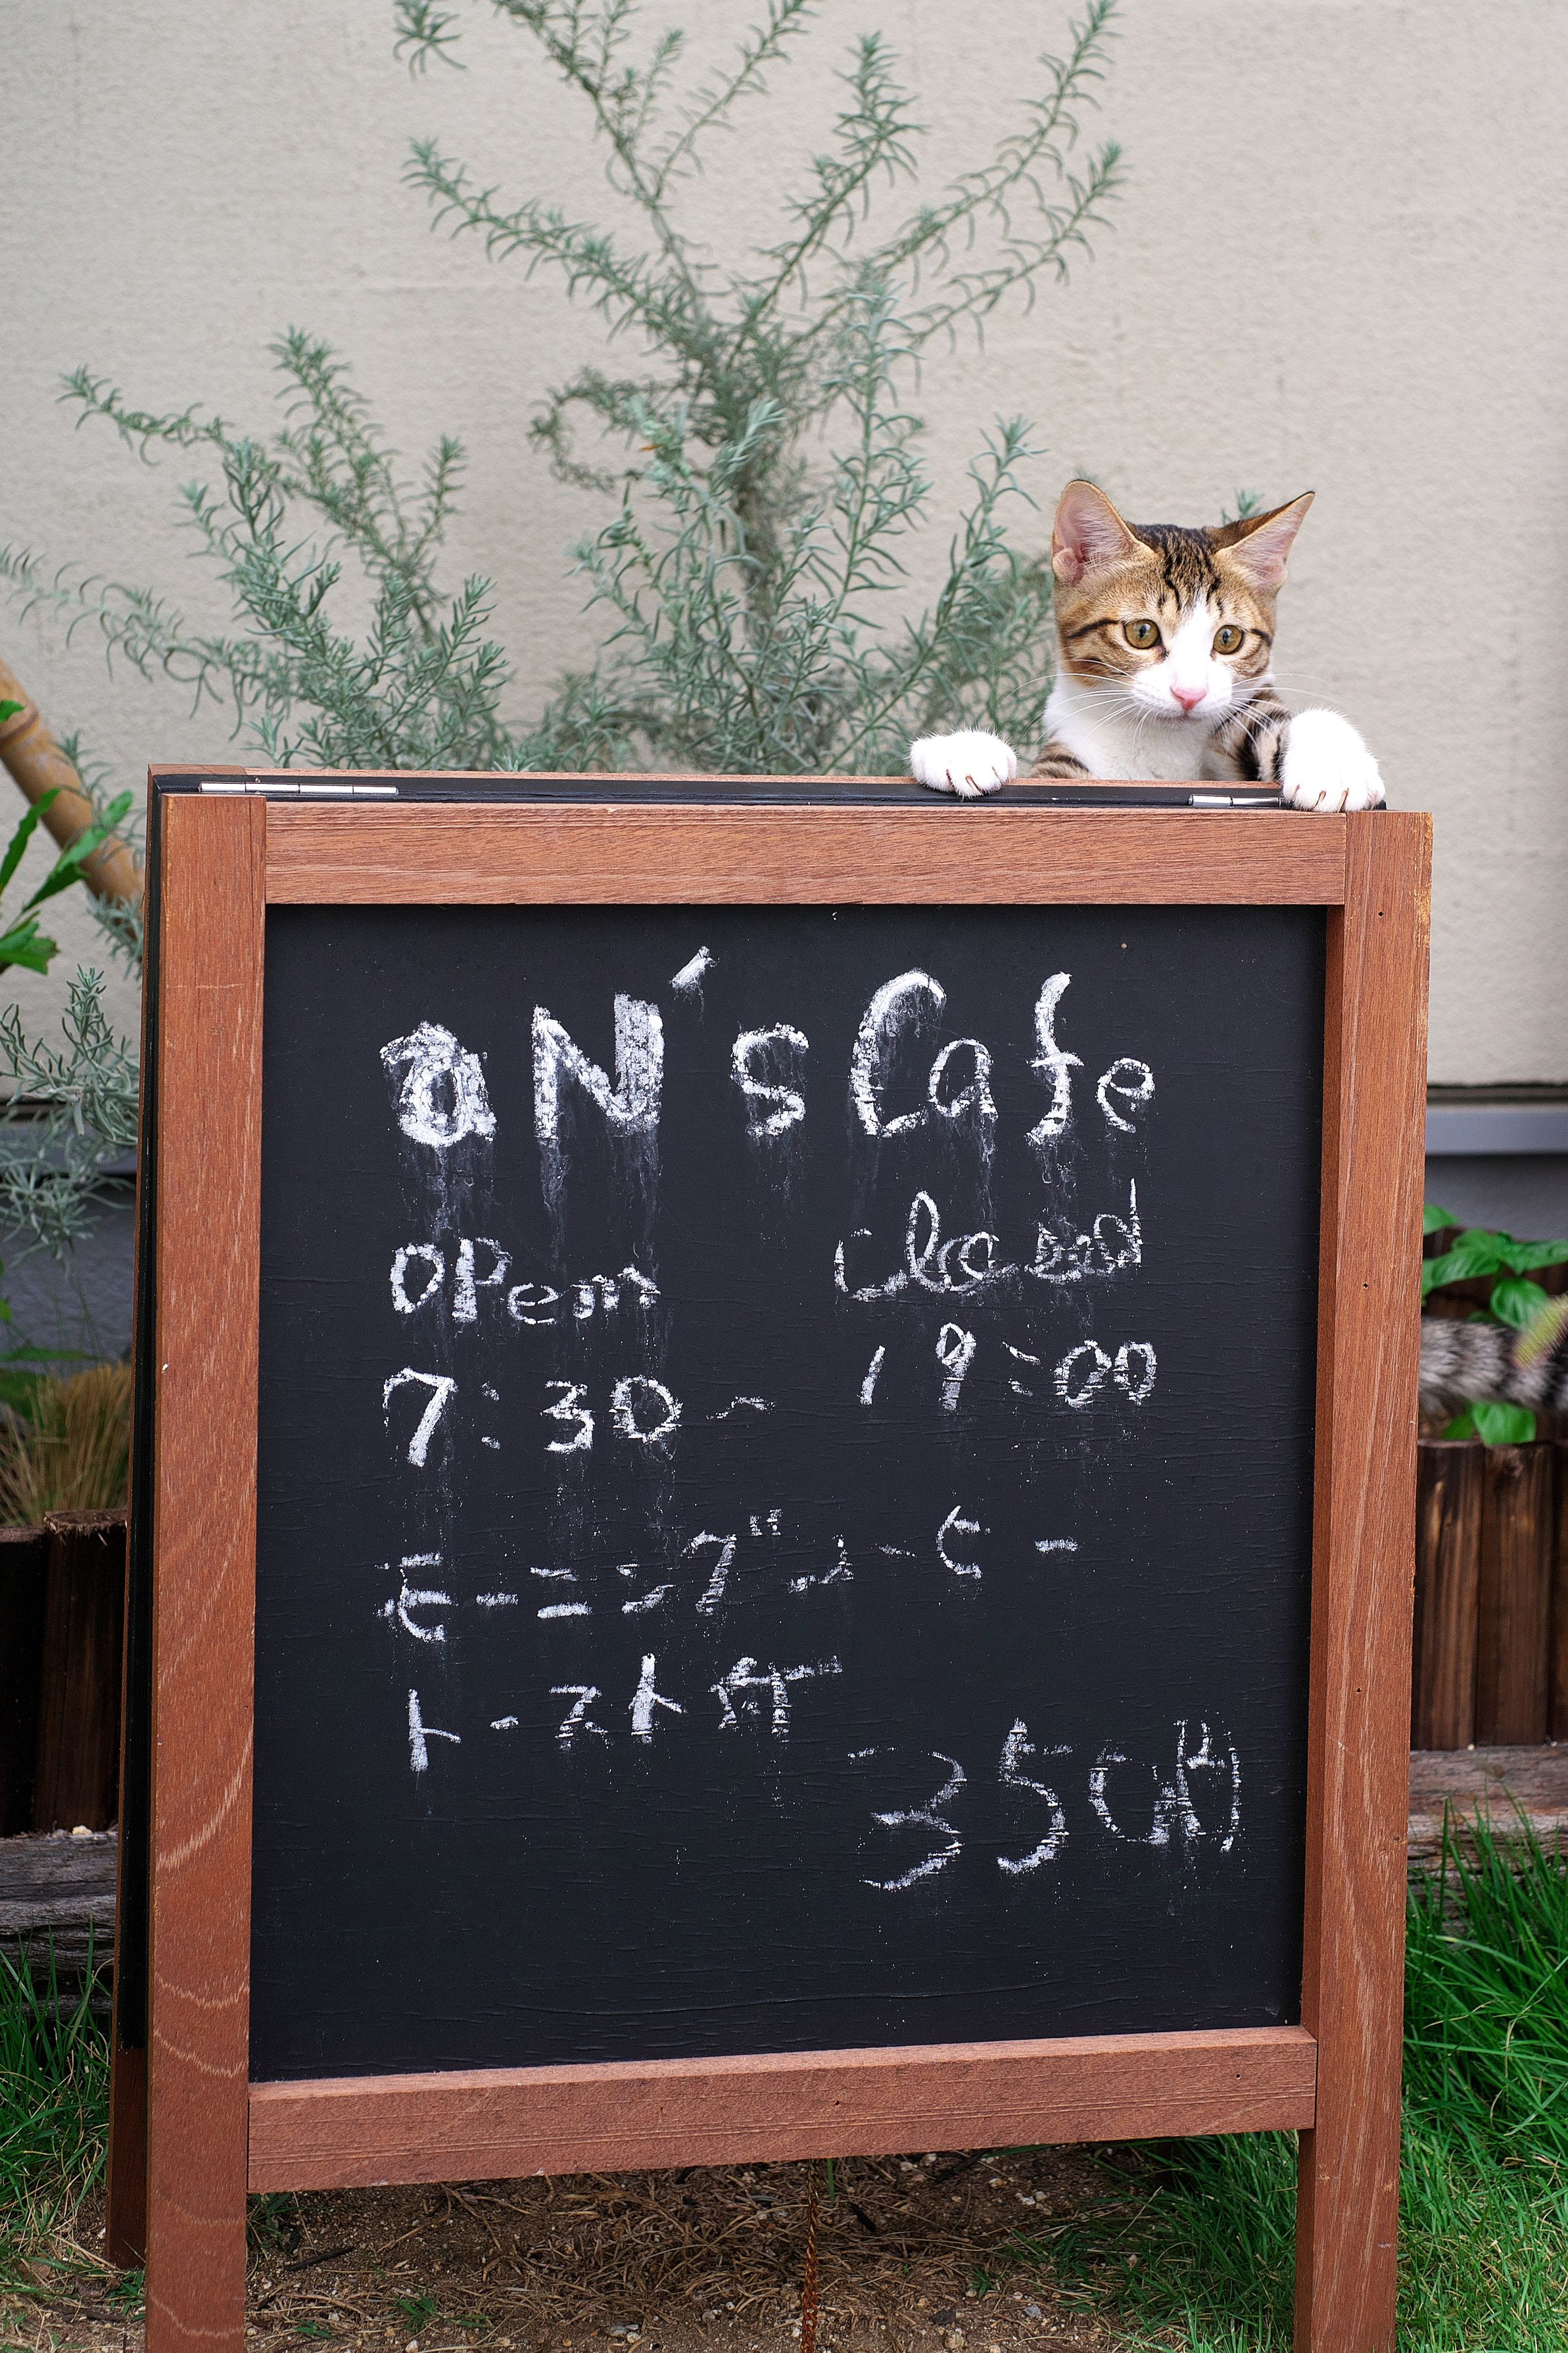 aN's Cafe
open closed
7:30～ 19:00
モーニングコーヒー
トースト付
350円